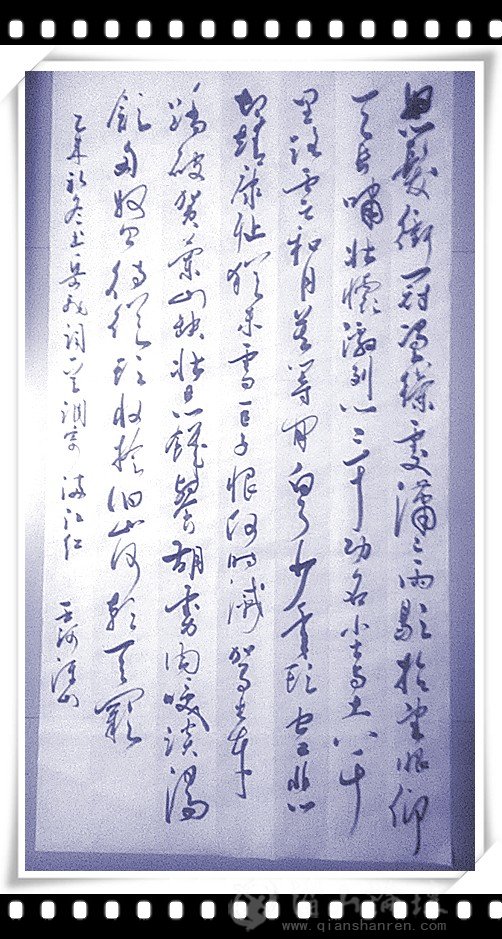 怒髮衝冠凭欄處瀟瀟雨歇抬望眼仰
天長嘯壯懷激烈三十功名尘与土八千
里路雲和月莫等閑白了少年頭空悲
切靖康耻猶未雪臣子恨何時滅駕長車
踏破賀蘭山缺壯志饑餐胡虜肉笑談渴
飲匈奴血待從頭收拾旧山河朝天闕
乙未初冬书岳飛詞一首調寄 滿江红
www.qianshanren.com